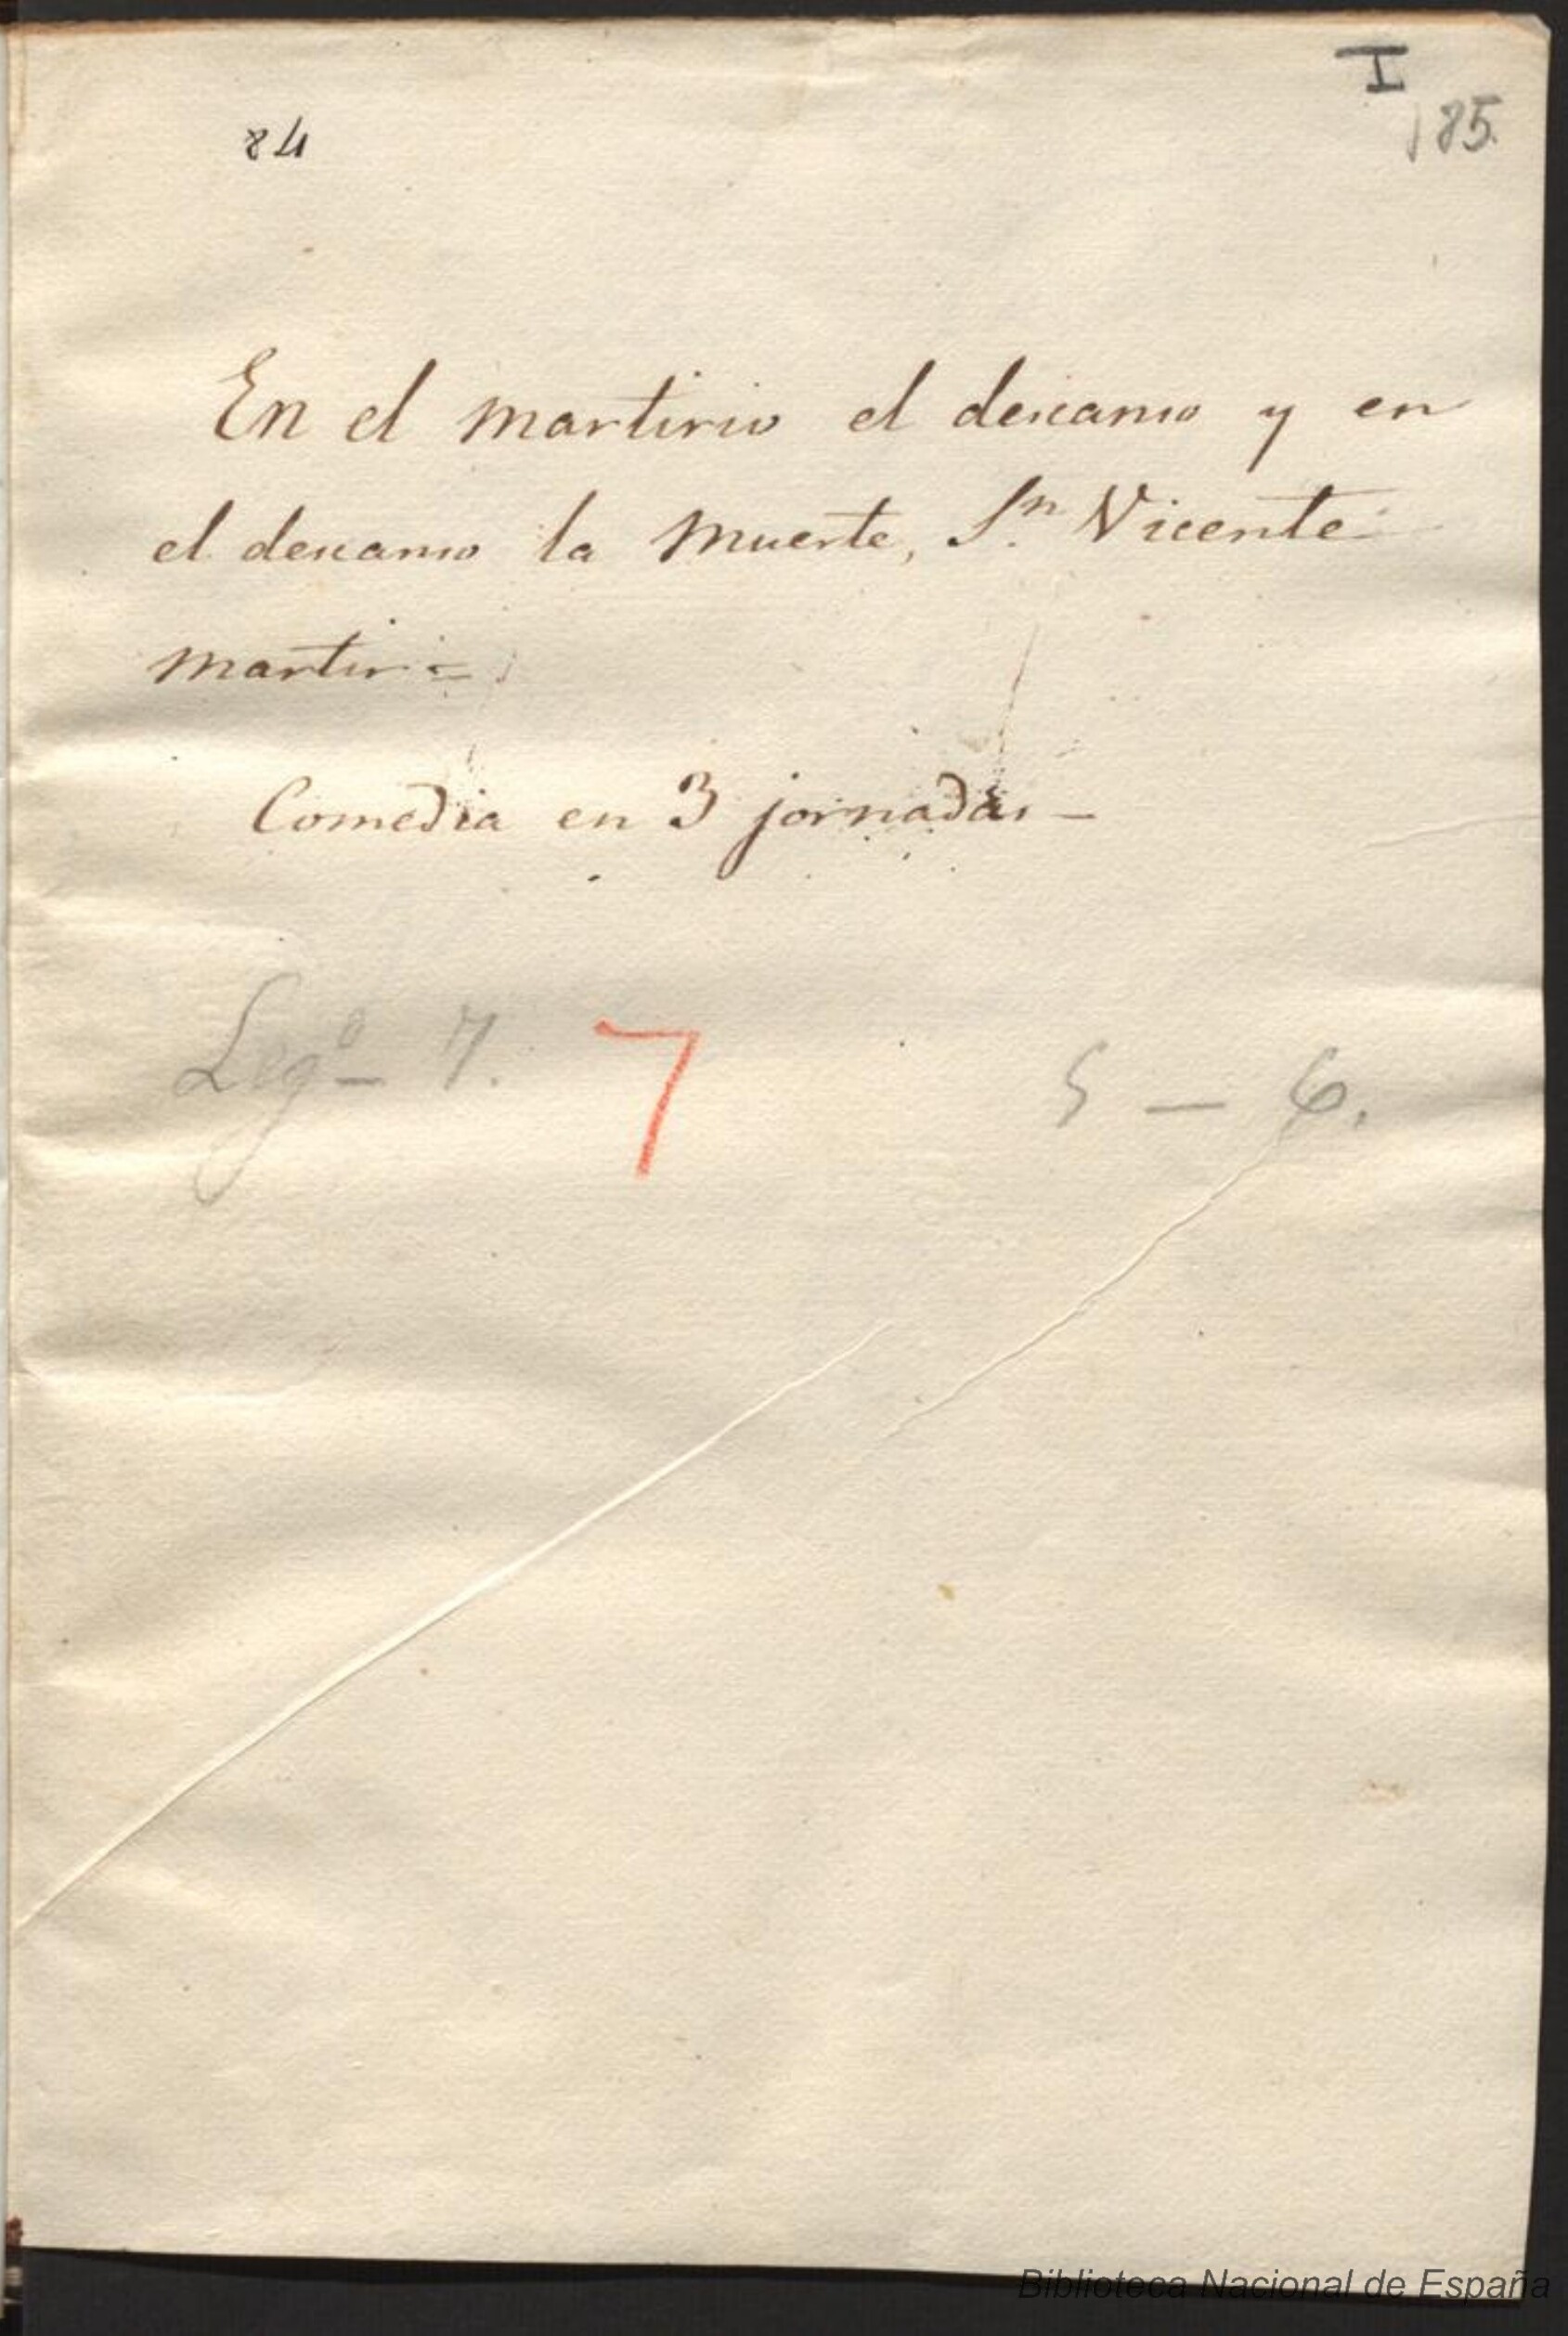 I
84
185.
En el martirio el descanso y en
el descanso la Muerte, Sn. Vicente
martir =
Comedia en 3 jornadas —
Lego 7. 7 5 — 6.
Biblioteca Nacional de España